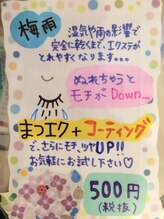 梅雨
湿気や雨の影響で
完全に乾くまで、エクステが
とれやすくなります…
ぬれちゃうと
モチがDown…
まつエク+コーティング
で、さらにモチ、ツヤUP!!
お気軽にお試し下さい♡
500円
(税抜)